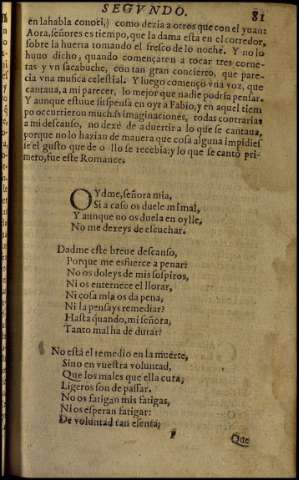 SEGVNDO. 81
en la habla conoci,) como dezia a otros que con el yuan:
Aora, señores es tiempo, que la dama esta en el corredor,
sobre la huerta tomando el fresco de lo noche. Y no lo
huuo dicho, quando començaren a tocar tres corne-
tas y vn sacabuche, con tan gran concierto, que pare-
cia vna musica celestial. Y luego començo vna voz, que
cantaua, a mi parecer, lo mejor que nadie podria pensar.
Y aunque estuue suspensa en oyr a Fabio, y en aquel tiem
po occurrieron muchas imaginaciones, todas contrarias
a mi descanso, no dexé de aduertir a lo que se cantaua,
porque no lo hazian de manera que cosa alguna impidies
se el gusto que de ollo se recebia: y lo que se cantò pri-
mero, fue este Romance.
OYdme, señora mia,
Si a caso os duele mi mal,
Y aunque no os duela en oylle,
No me dexeys de escuchar.
Dadme este breue descanso,
Porque me esfuerce a penar:
No os doleys de mis sospiros,
Ni os enternece el llorar,
Ni cosa mia os da pena,
Ni la pensays remediar?
Hasta quando, mi señora,
Tanto mal ha de durar?
No está el remedio en la muerte,
Sino en vuestra voluntad,
Que los males que ella cura,
Ligeros son de passar.
No os fatigan mis fatigas,
Ni os esperan fatigar:
De voluntad tan esenta,
Que